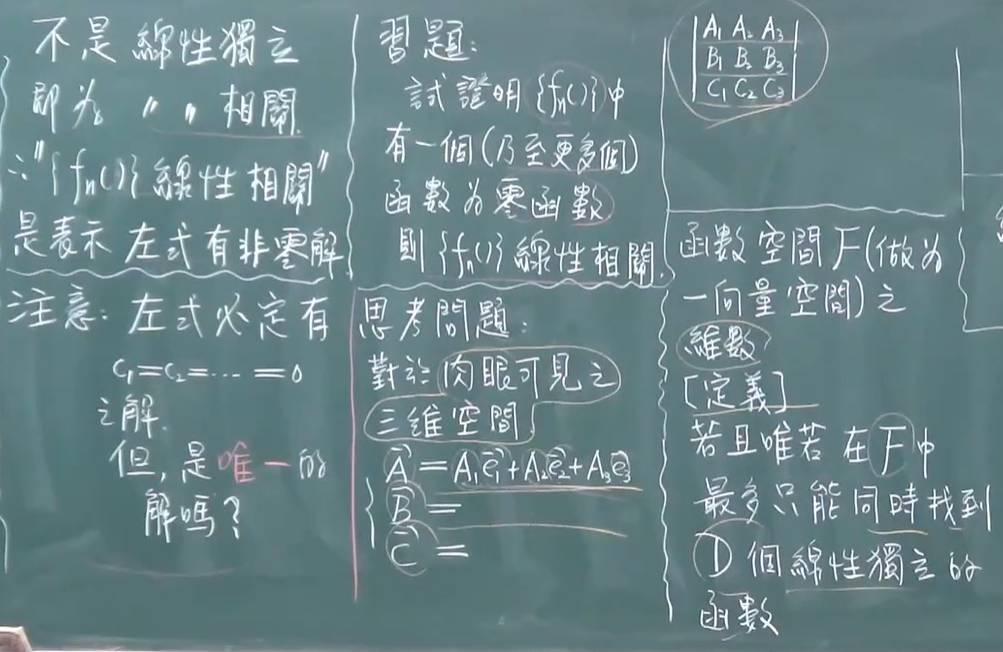 不是線性獨立
即為 〃 〃 相關
∴"{fₙ()}線性相關"
是表示 左式有非零解
注意: 左式必定有
c₁=c₂=⋯=0
之解.
但, 是唯一的
解嗎?
習題:
試證明{fₙ()}中
有一個(乃至更多個)
函數為零函數
則{fₙ()}線性相關.
思考問題:
對於肉眼可見之
三維空間
A⃗=A₁e⃗₁+A₂e⃗₂+A₃e⃗₃
B⃗=
C⃗=
A₁ A₂ A₃
B₁ B₂ B₃
C₁ C₂ C₃
函數空間F(做為
一向量空間)之
維數
[定義]
若且唯若 在F中
最多只能同時找到
D個線性獨立的
函數